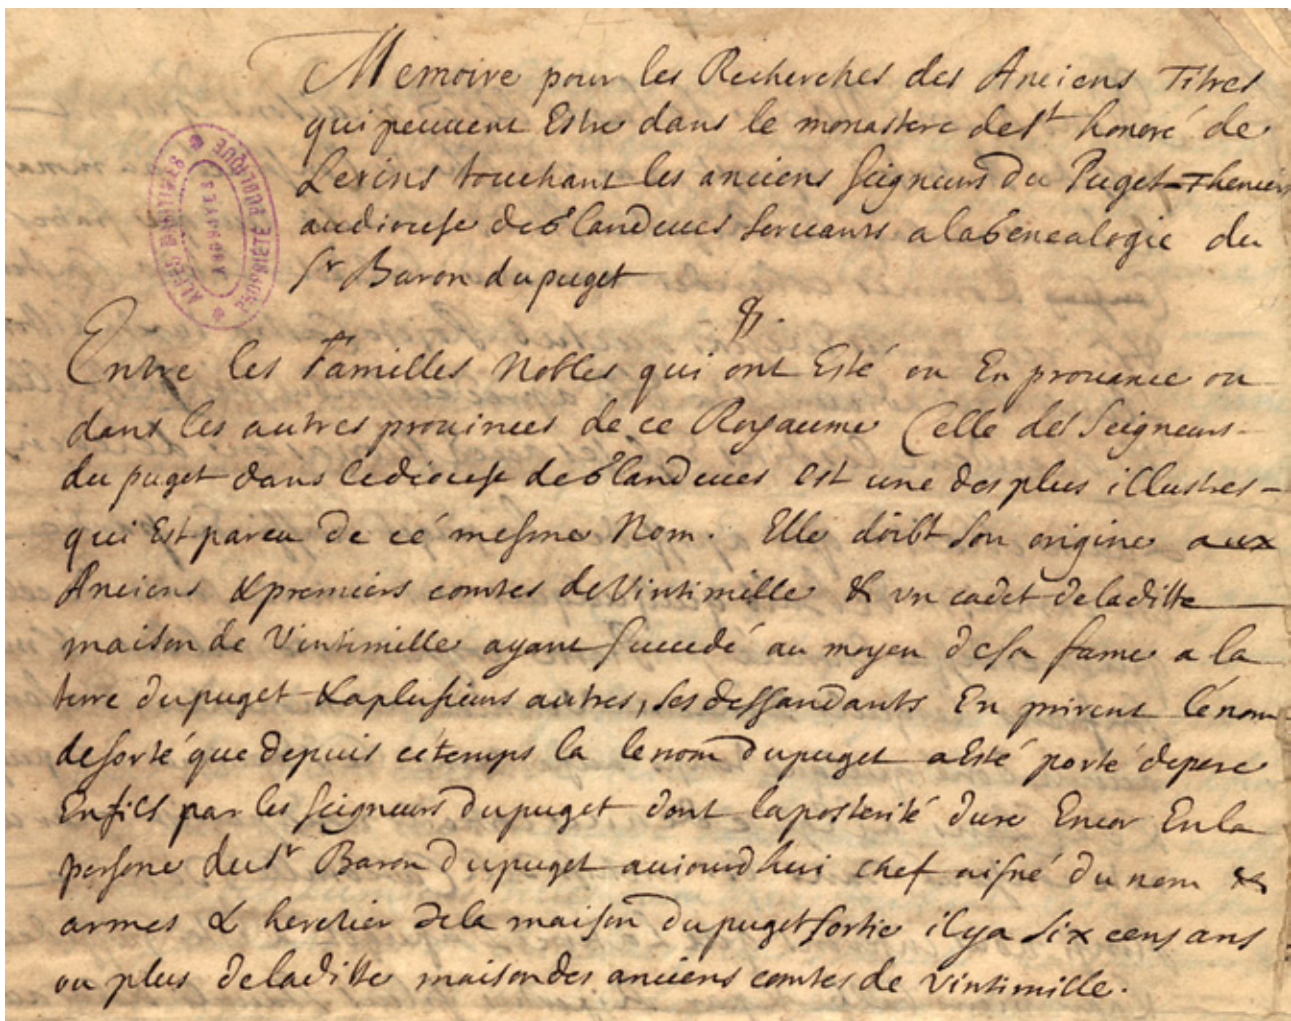 Memoire pour les Recherches des Anciens Titres
qui peuuent Estre dans le monastere de st honoré de
Lerins touchant les anciens seigneurs du Puget-Theniers
au diocese de Glandeues seruants a la Genealogie du
sr Baron du puget
Entre les Familles Nobles qui ont Esté ou En prouance ou
dans les autres prouinces de ce Royaume Celle des Seigneurs
du puget dans le diocese de Glandeues est une des plus illustres
qui Est pareu de cé mesme Nom. Elle doibt son origine aux
Anciens & premiers comtes de Vintimille & vn cadet de laditte
maison de Vintimille ayant succedé au moyen de sa fame a la
terre du puget & a plusieurs autres, ses dessandants En prirent lé nom
de sorté que depuis cé temps la le nom du puget a Esté porté de pere
En fils par les seigneurs du puget dont la posterité dure Encor En la
persone du sr Baron du puget auiourdhui chef aisné du nom &
armes & heretier de la maison du puget sortie il y a six cens ans
ou plus de laditte maison des anciens comtes de Vintimille.
ALPES MARITIMES
PROPRIÉTÉ PUBLIQUE
ARCHIVES